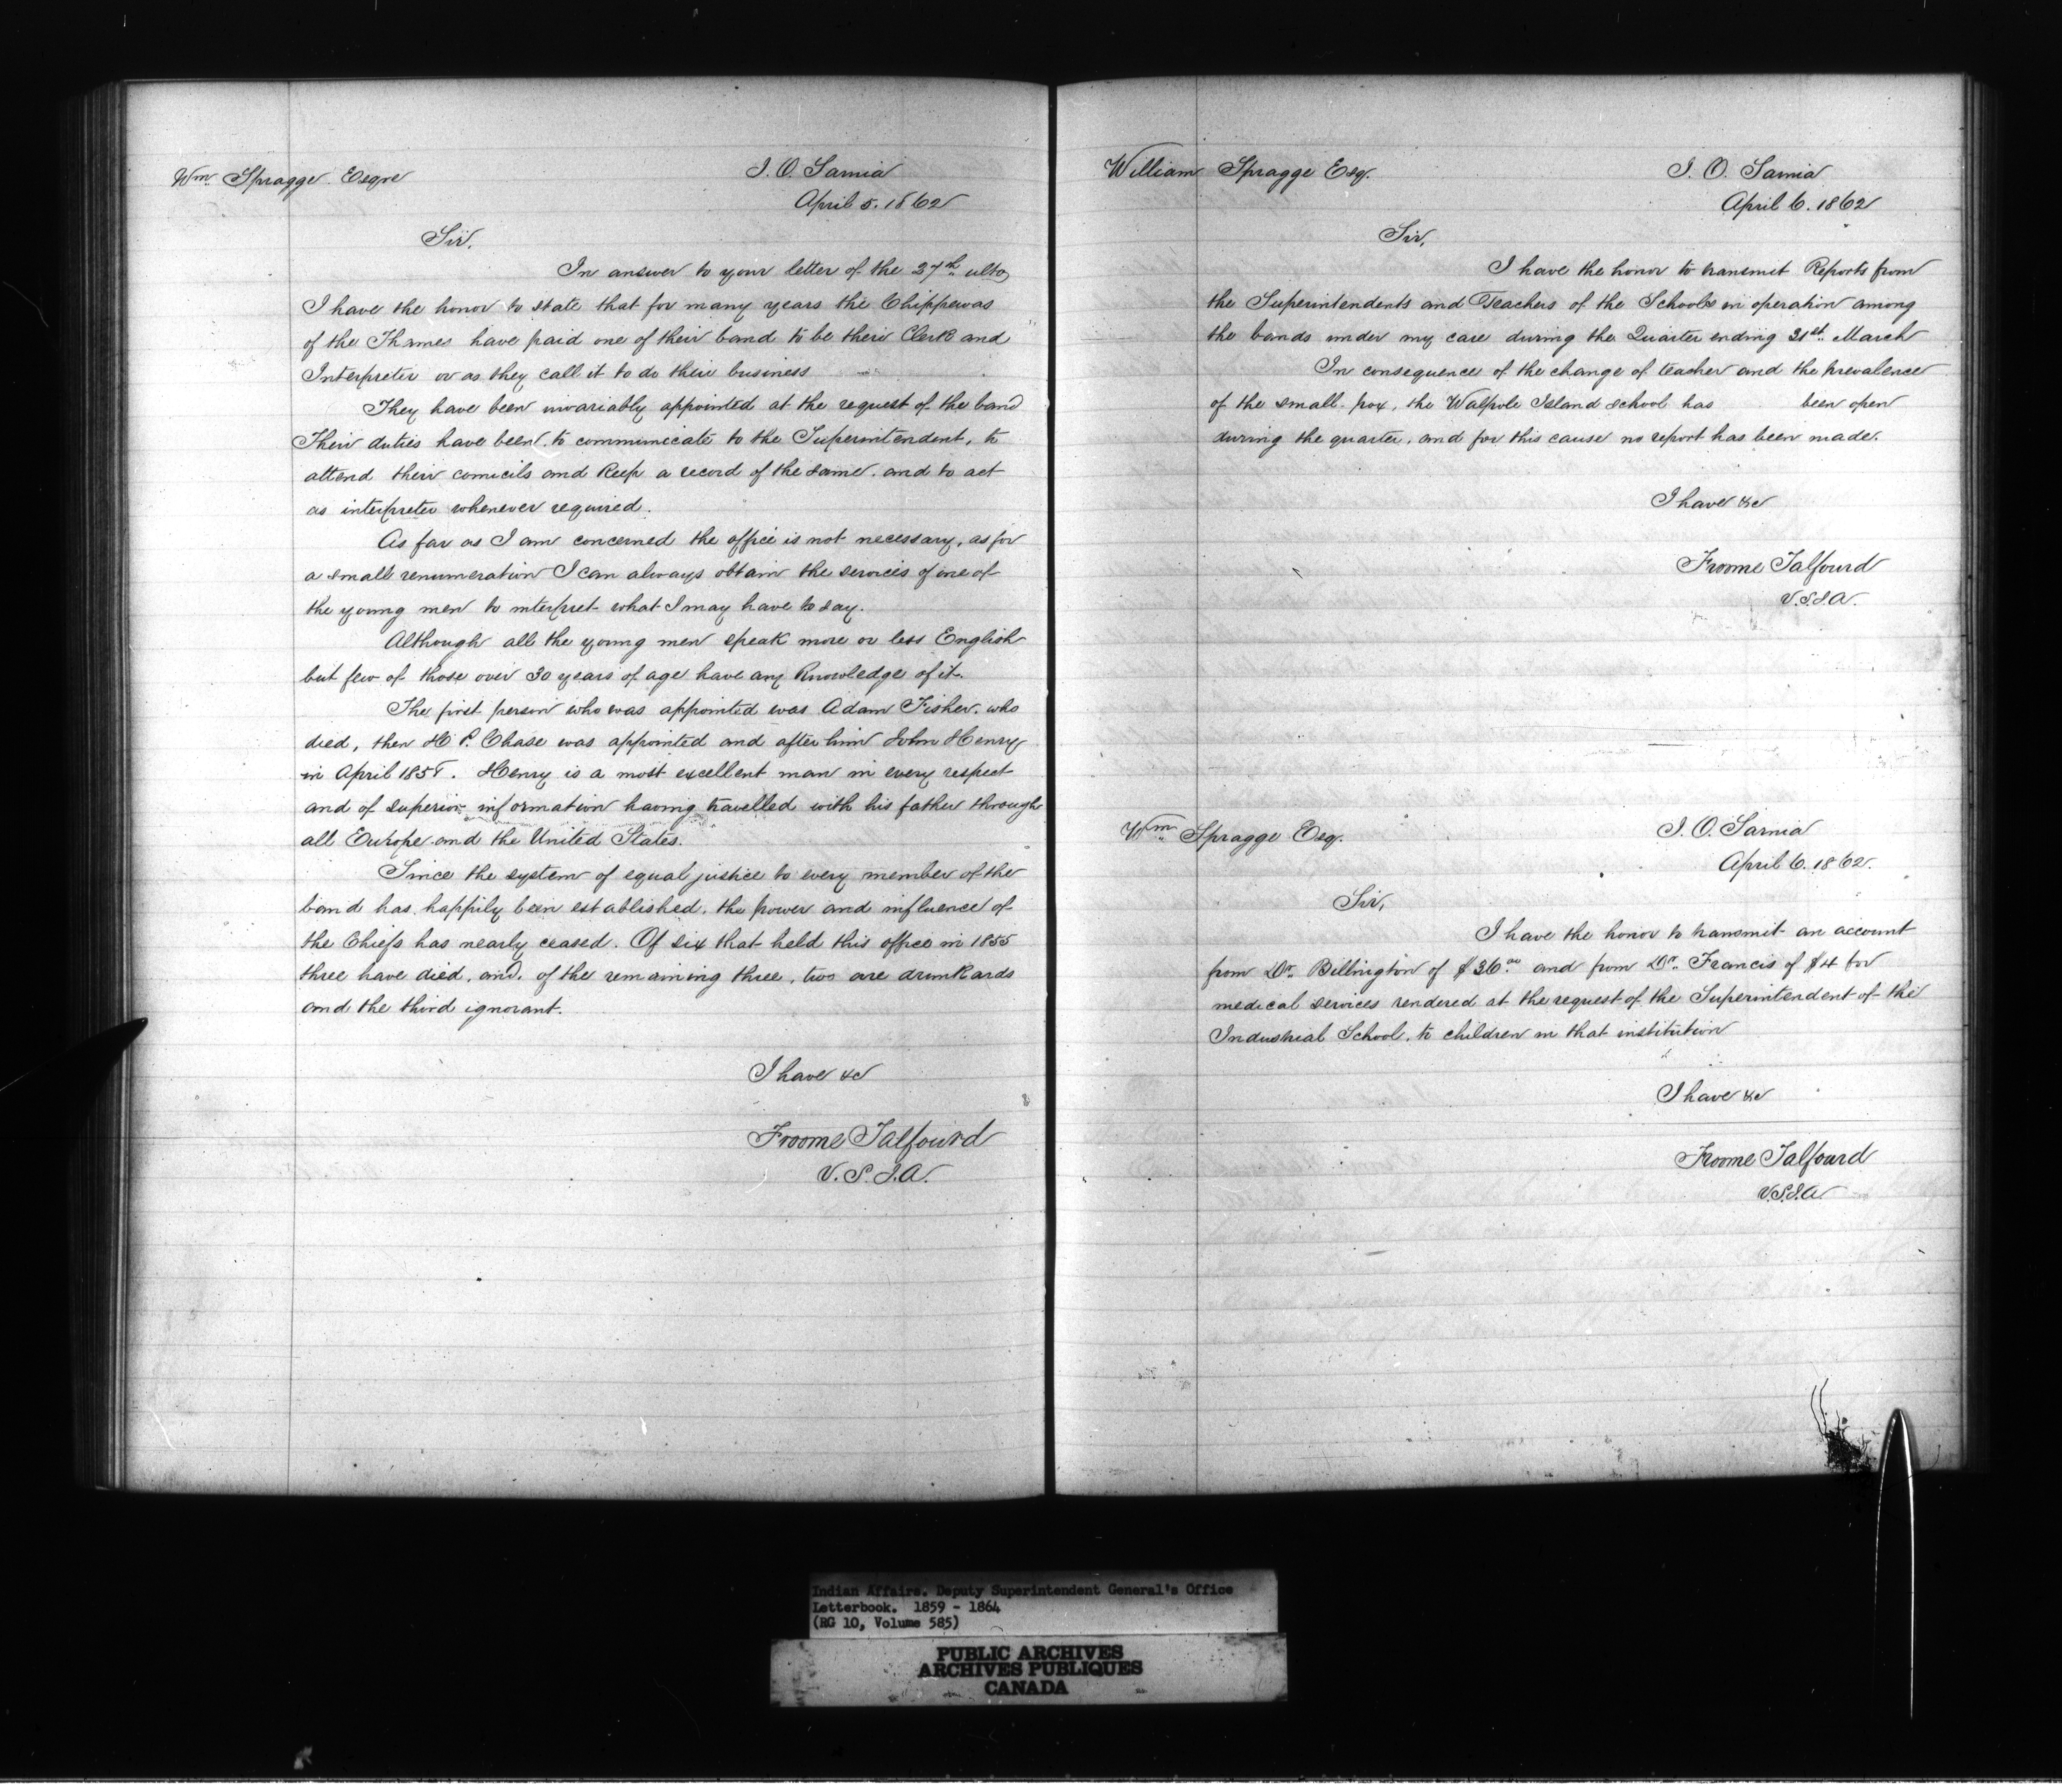 Wm. Spragge. Esqre
I. O. Sarnia
April 5. 1862
Sir,
In answer to your letter of the 27th ulto
I have the honor to state that for many years the Chippewas
of the Thames have paid one of their band to be their Clerk and
Interpreter or as they call it to do their business
They have been invariably appointed at the request of the band
Their duties have been to communicate to the Superintendent, to
attend their councils and keep a record of the same. and to act
as interpreter whenever required.
As far as I am concerned the office is not necessary, as for
a small renumeration I can always obtain the services of one of
the young men to interpret what I may have to say.
Although all the young men speak more or less English
but few of those over 30 years of age have any knowledge of it.
The first person who was appointed was Adam Fisher. who
died, then H P. Chase was appointed and after him John Henry
in April. Henry is a most excellent man in every respect
and of superior information having travelled with his father through
all Europe and the United States.
Since the system of equal justice to every member of the
band has happily been established, the power and influence of
the Chiefs has nearly ceased. Of six that held this office in 1855
three have died, and, of the remaining three, two are drunkards
and the third ignorant.
I have &c
Froome Talfourd
V. S. I. A.
William Spragge Esq.
I. O. Sarnia
April 6. 1862
Sir,
I have the honor to transmit Reports from
the Superintendents and Teachers of the Schools in operation among
the bands under my care during the Quarter ending 31st. March
In consequence of the change of teacher and the prevalence
of the small pox, the Walpole Island school has been open
during the quarter, and for this cause no report has been made.
I have &c
Froome Talfourd
V.S.I.A.
Wm Spragge Esq.
I. O. Sarnia
April 6. 1862.
Sir,
I have the honor to transmit an account
from Dr. Billington of $36.00 and from Dr. Francis of $4 for
medical services rendered at the request of the Superintendent of the
Industrial School, to children in that institution
I have &c
Froome Talfourd
V.S.I.A
Indian Affairs. Deputy Superintendent General's Office
Letterbook. 1859 - 1864
(RG 10, Volume 585)
PUBLIC ARCHIVES
ARCHIVES PUBLIQUES
CANADA